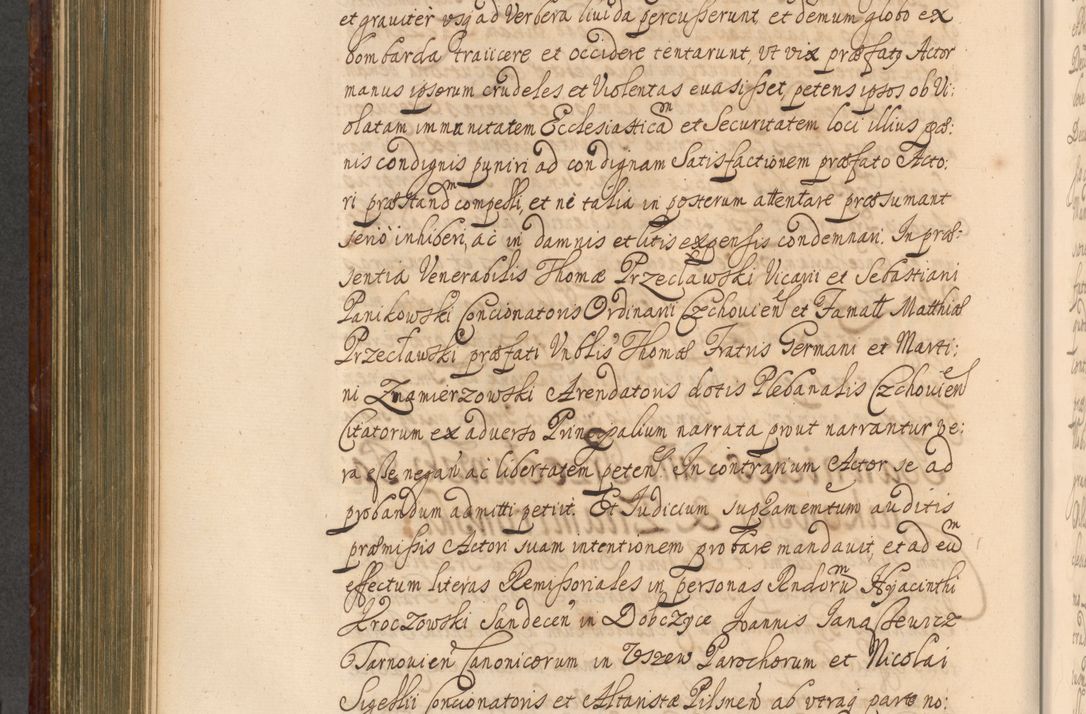 et graviter usq ad Verbera livida percusserunt et demum globo ex
bombarda traiicere et occidere tentarunt, ut vix præfatq Actor
manus ipsorum crudeles et Violentas evasisset, petens ipsos ob Vi:
olatam immunitatem Ecclesiasticam et Securitatem loci illius pæ:
nis condignis puniri ad condignam Satisfactionem præfato Acto:
ri præstandm compelli, et ne talia in posterum attentare præsumant
serio inhiberi, ac in damnis et litis expensis condemnari. In præ:
sentia Venerabilis Thomæ Przecławski Vicarii et Sebastiani
Panikowski Concionatoris Ordinarii Czchovien et Famati Matthiæ
Przecławski præfati Vnblis Thomæ Fratris Germani et Marti:
ni Znamierzowski Arendatoris dotis Plebanalis Czchovien
Citatorum ex adverso Principalium narrata prout narrantur ve:
ra esse negan ac libertatem peten. In contrarium Actor se ad
probandum admitti petiit. Et Iudicium supramemtum auditis
præmissis Actori suam intentionem probare mandavit, et ad eum
effectum literas Remissoriales in personas Rndorum Hyacinthi
Kroczowski Sandecen in Dobczyce Joannis Janassevicz
Tarnovien Canonicorum in Tszew Parochorum et Nicolai
Sigelli Concionatoris et Altaristæ Pilsnen ab utraq parte no: